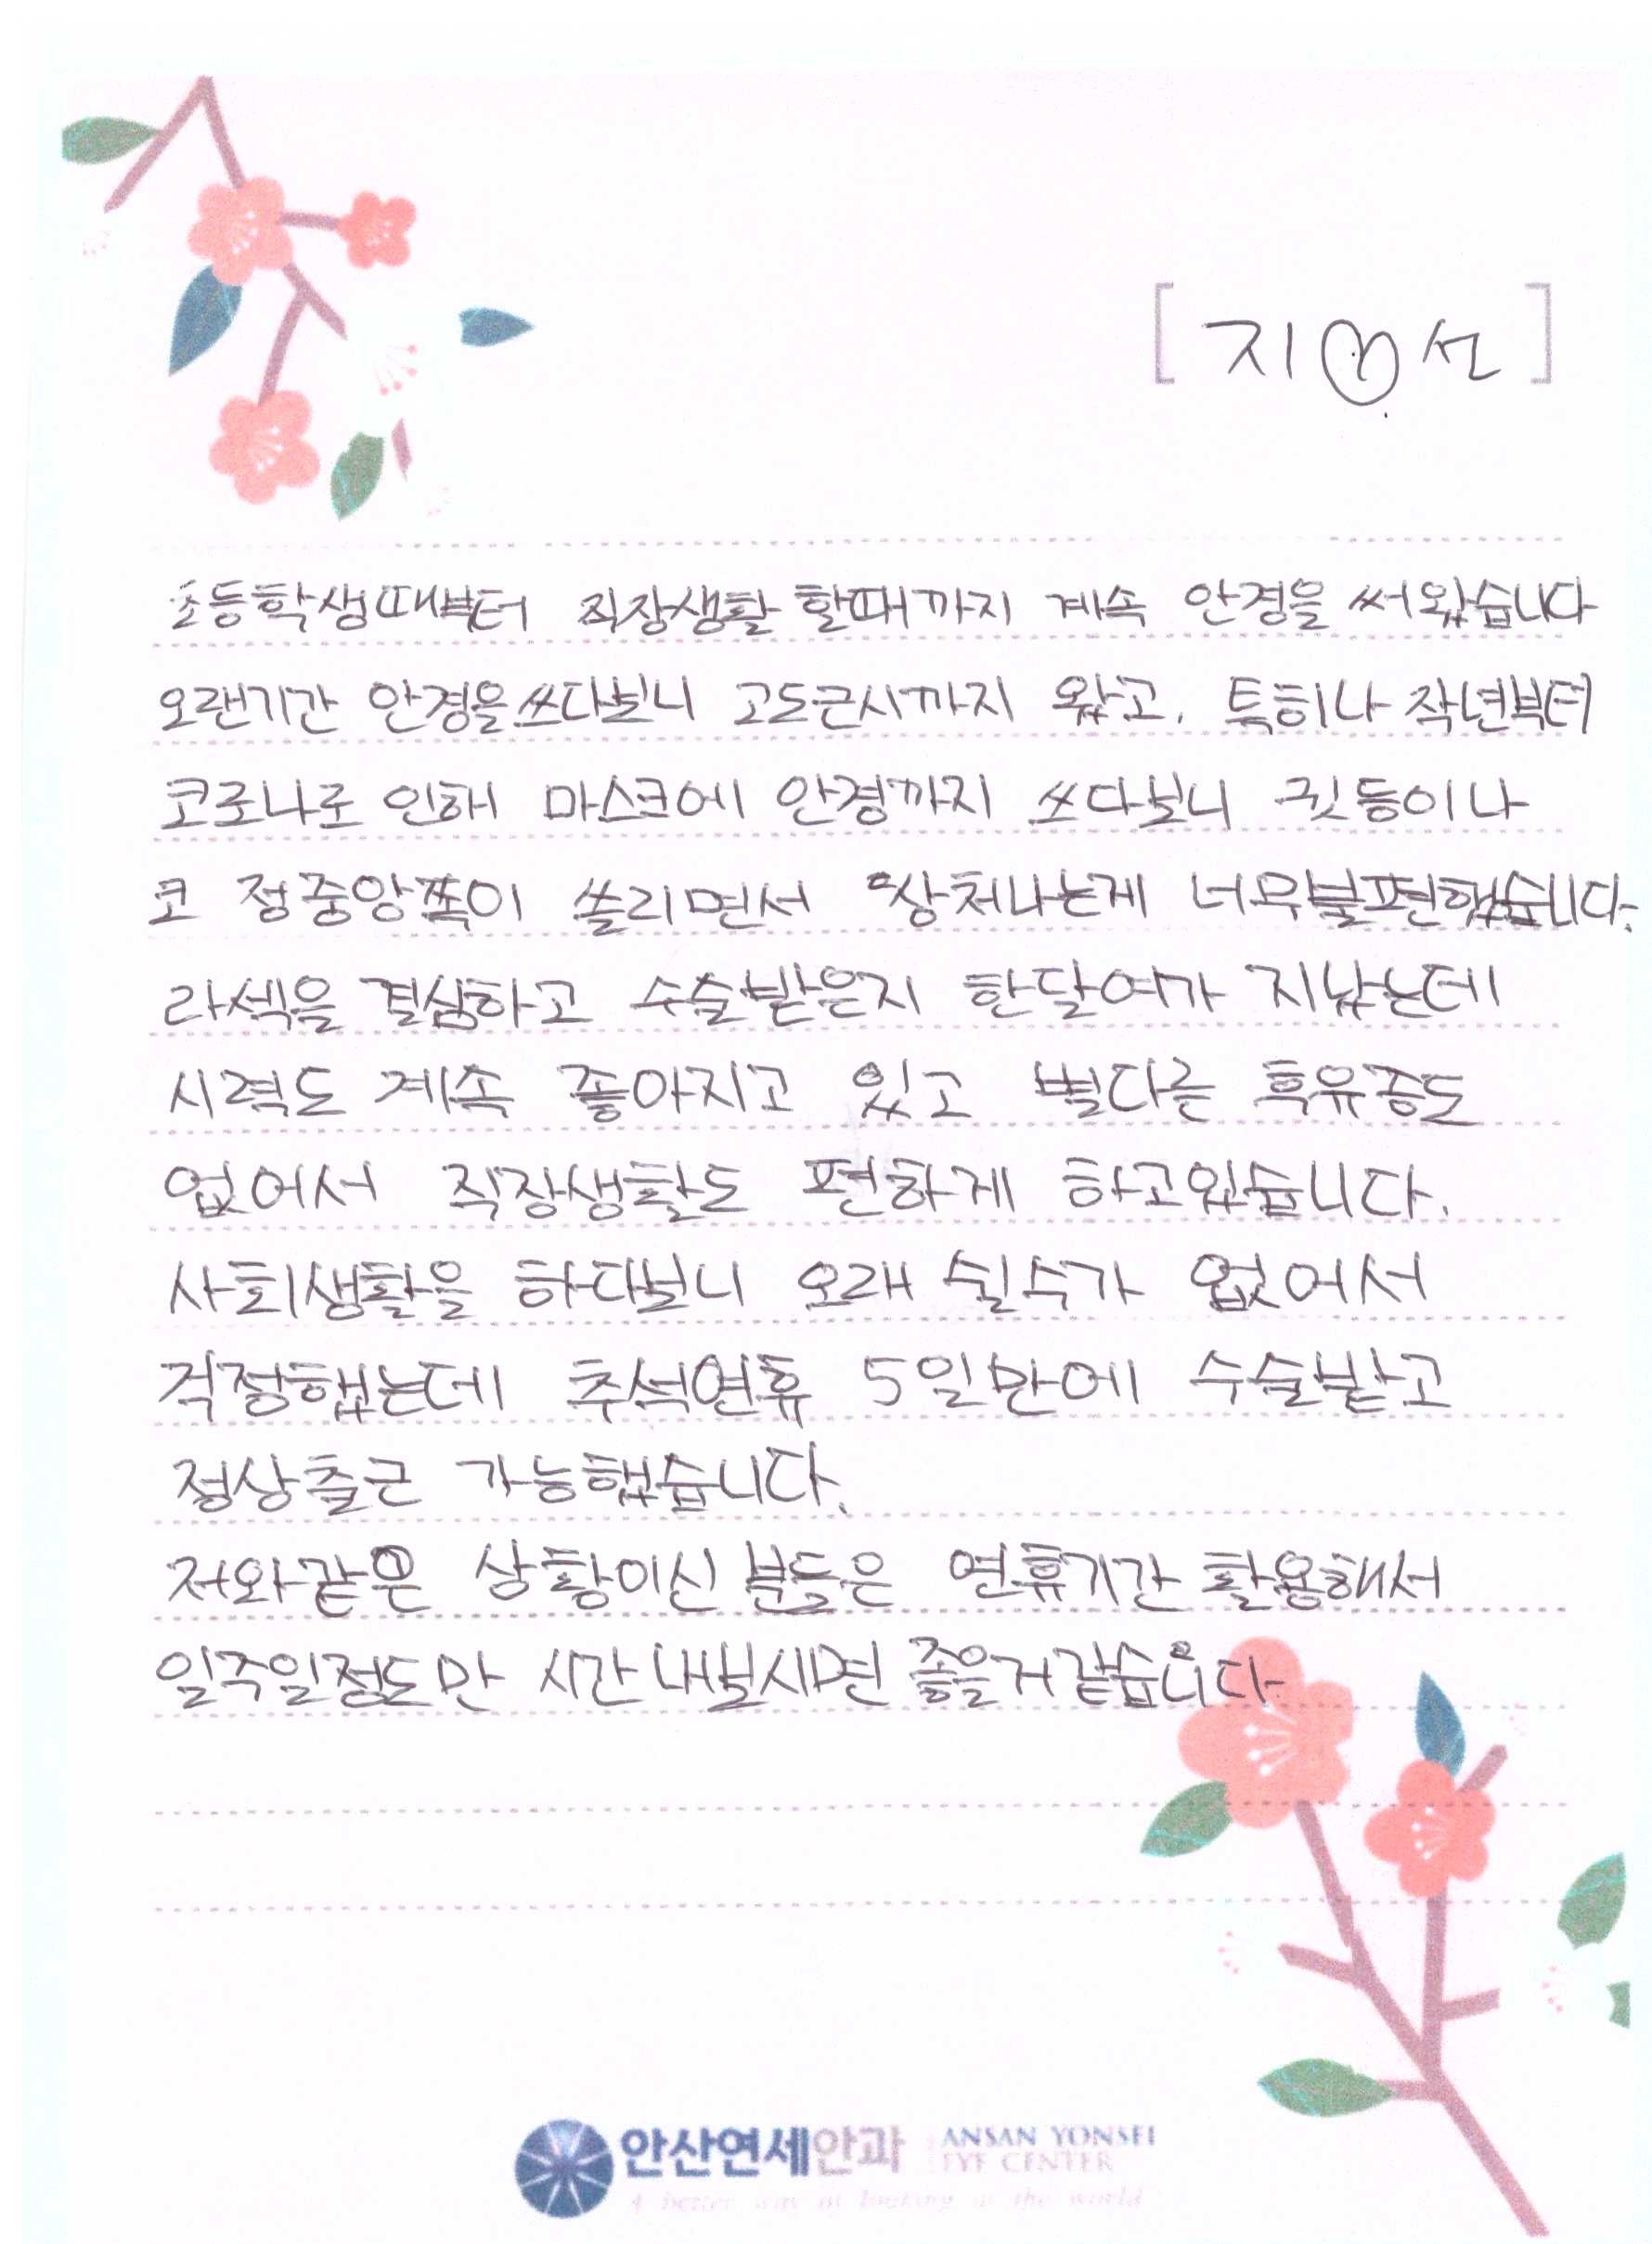 [ 지♡선 ]
초등학생때부터 직장생활 할때까지 계속 안경을 써왔습니다
오랜기간 안경을쓰다보니 고도근시까지 왔고, 특히나 작년부터
코로나로 인해 마스크에 안경까지 쓰다보니 귓등이나
코 정중앙쪽이 쓸리면서 상처나는게 너무불편했습니다.
라섹을 결심하고 수술받은지 한달여가 지났는데
시력도 계속 좋아지고 있고 별다른 후유증도
없어서 직장생활도 편하게 하고있습니다.
사회생활을 하다보니 오래 쉴수가 없어서
걱정했는데 추석연휴 5일만에 수술받고
정상출근 가능했습니다.
저와같은 상황이신 분들은 연휴기간 활용해서
일주일정도만 시간내보시면 좋을거같습니다
안산연세안과 ANSAN YONSEI
EYE CENTER
A better way of looking at the world